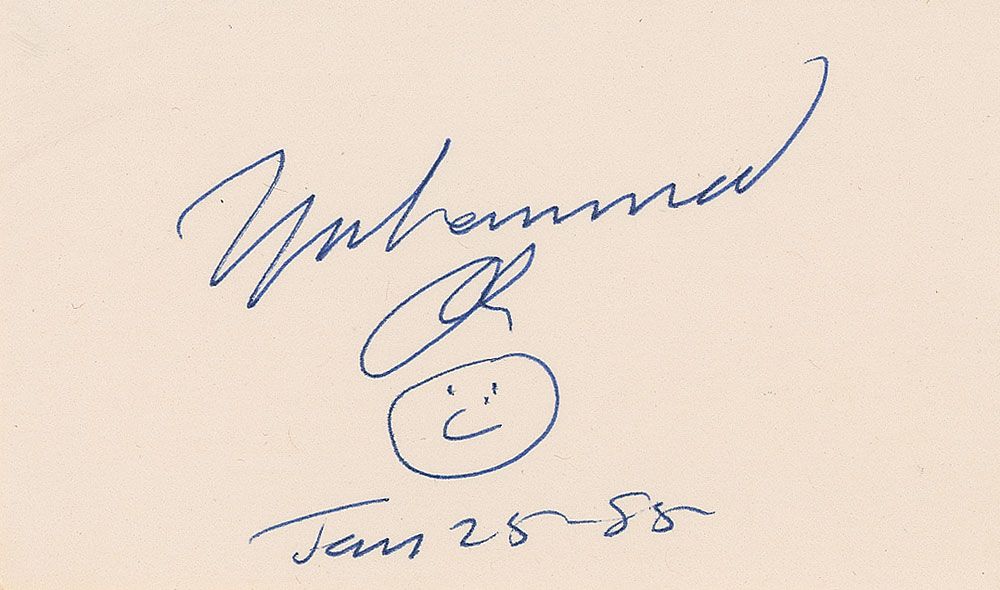 Muhammad
Ali
Jan 25-85